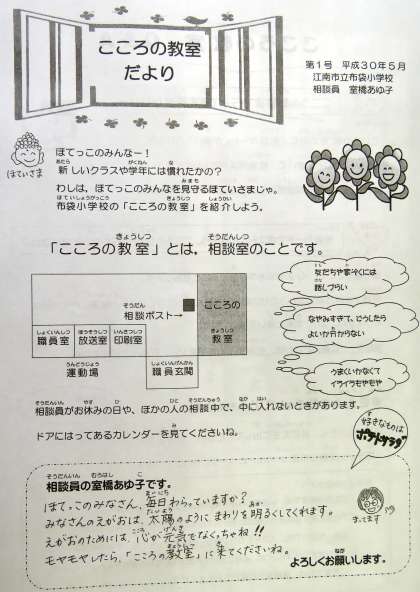 こころの教室
だより
第1号　平成30年5月
江南市立布袋小学校
相談員　室橋あゆ子
ほていさま
ほてっこのみんなー！
新しいクラスや学年には慣れたかの？
わしは、ほてっこのみんなを見守るほていさまじゃ。
布袋小学校の「こころの教室」を紹介しよう。
「こころの教室」とは、相談室のことです。
相談ポスト→
こころの
教室
職員室
放送室
印刷室
運動場
職員玄関
友だちや家ぞくには
話しづらい
なやみすぎて、どうしたら
よいか分からない
うまくいかなくて
イライラもやもや
相談員がお休みの日や、ほかの人の相談中で、中に入れないときがあります。
ドアにはってあるカレンダーを見てくださいね。
好きなものは
ポテトサラダ
相談員の室橋あゆ子です。
ほてっこのみなさん、毎日わらっていますか？
みなさんのえがおは、太陽のように まわりを明るくしてくれます。
えがおのためには、心が元気でなくっちゃね!!
モヤモヤしたら、「こころの教室」に来てくださいね。
まってます
よろしくお願いします。